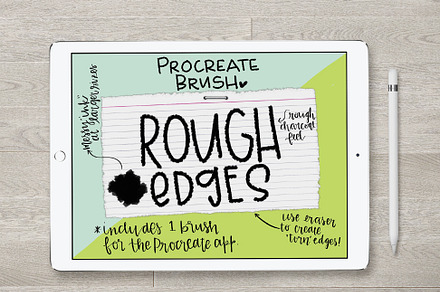 PROCREATE
BRUSH
ROUGH
EDGES
messy ink
at larger sizes
rough
charcoal
feel
*includes 1 brush
for the Procreate app.
use eraser
to create
"torn" edges!